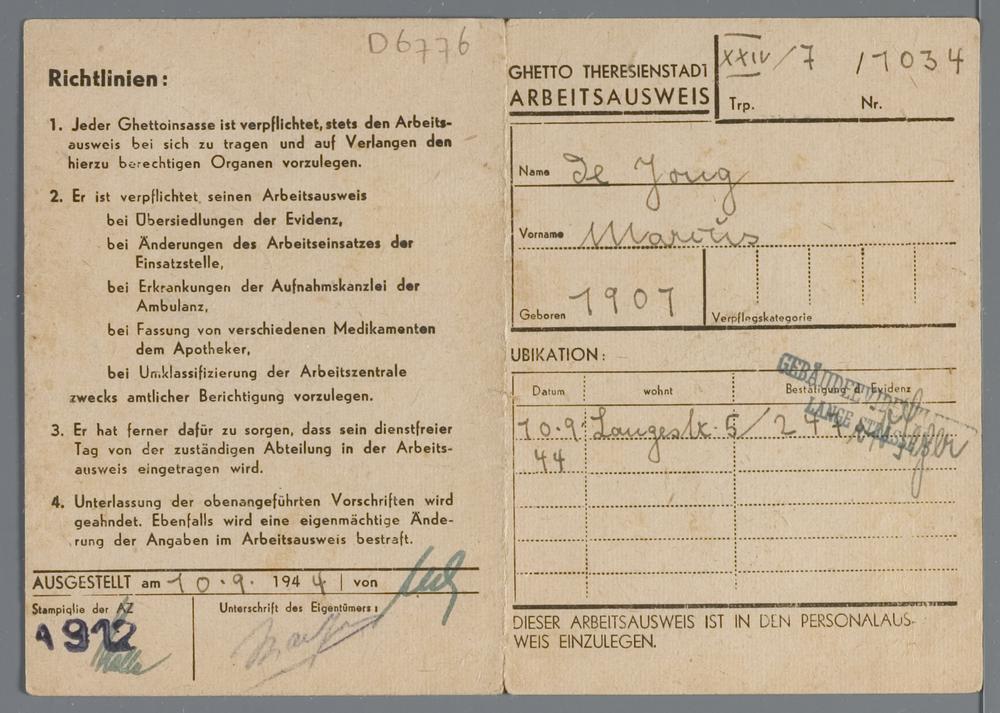 D6776
Richtlinien:
1. Jeder Ghettoinsasse ist verpflichtet, stets den Arbeits-
ausweis bei sich zu tragen und auf Verlangen den
hierzu berechtigen Organen vorzulegen.
2. Er ist verpflichtet seinen Arbeitsausweis
bei Übersiedlungen der Evidenz,
bei Änderungen des Arbeitseinsatzes der
Einsatzstelle,
bei Erkrankungen der Aufnahmskanzlei der
Ambulanz,
bei Fassung von verschiedenen Medikamenten
dem Apotheker,
bei Umklassifizierung der Arbeitszentrale
zwecks amtlicher Berichtigung vorzulegen.
3. Er hat ferner dafür zu sorgen, dass sein dienstfreier
Tag von der zuständigen Abteilung in der Arbeits-
ausweis eingetragen wird.
4. Unterlassung der obenangeführten Vorschriften wird
geahndet. Ebenfalls wird eine eigenmächtige Ände-
rung der Angaben im Arbeitsausweis bestraft.
AUSGESTELLT am 10.9. 1944 | von
Stampiglie der AZ
A 912
Unterschrift des Eigentümers:
GHETTO THERESIENSTADT
ARBEITSAUSWEIS
XXIV/7 17034
Trp. Nr.
Name De Jong
Vorname Marcus
Geboren 1907
Verpflegskategorie
UBIKATION:
Datum wohnt Bestätigung d. Evidenz
10.9 Langestr. 5/
44
LANGE STRASSE
DIESER ARBEITSAUSWEIS IST IN DEN PERSONALAUS-
WEIS EINZULEGEN.